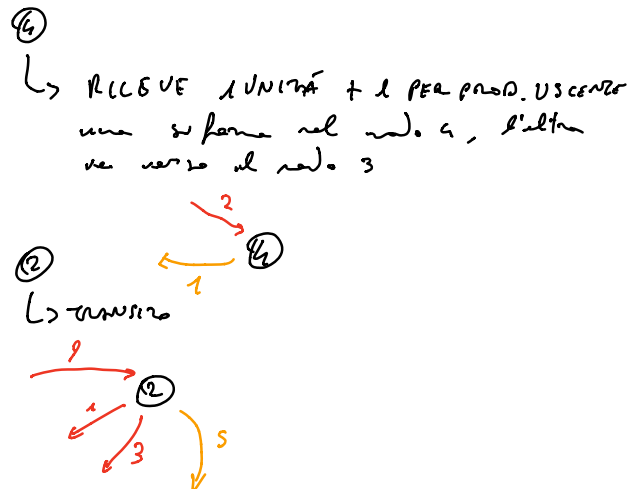 4
RICEVE 1 UNITÁ + 1 PER PROD. USCENTE
una si ferma nel nodo 4, l'altra
va verso il nodo 3
2
4
1
2
TRANSITO
9
2
1
3
5